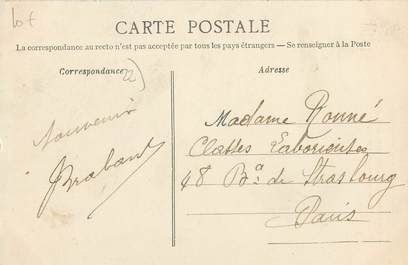 lot
CARTE POSTALE
La correspondance au recto n'est pas acceptée par tous les pays étrangers — Se renseigner à la Poste
Correspondance
Adresse
22)
Souvenir
JBrabant
Madame Ronné
Classes Laborieuses
48 Bd. de Strasbourg
Paris